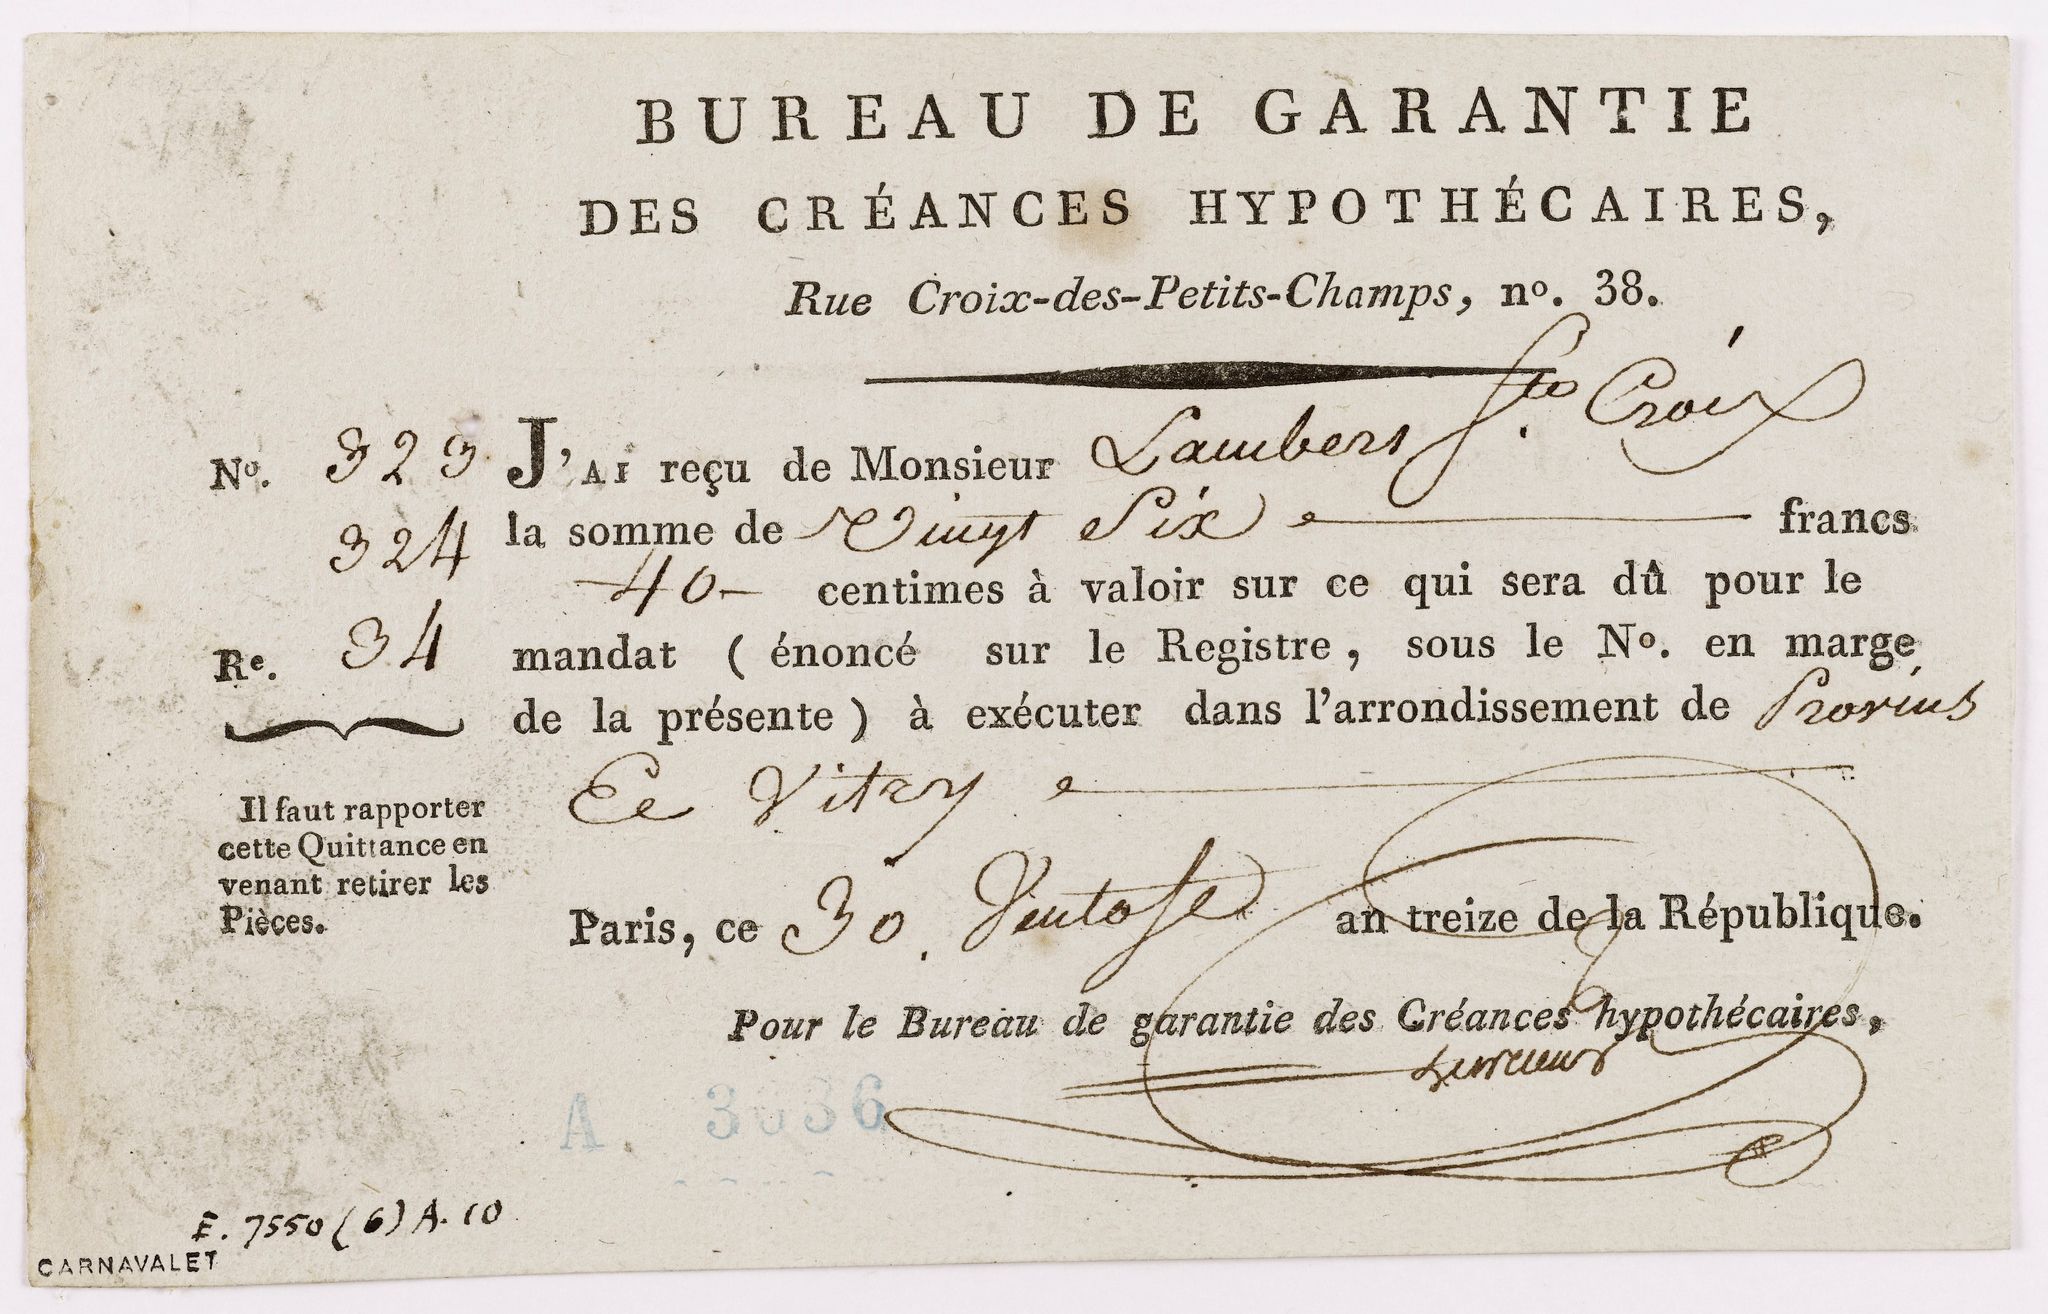 BUREAU DE GARANTIE
DES CRÉANCES HYPOTHÉCAIRES,
Rue Croix-des-Petits-Champs, nº. 38.
Nº. 323 J'AI reçu de Monsieur Lambert Ste. Croix
324 la somme de Vingt Six francs
-40- centimes à valoir sur ce qui sera dû pour le
Re. 34 mandat ( énoncé sur le Registre, sous le Nº. en marge
de la présente ) à exécuter dans l'arrondissement de Provins
Et Vitry
Il faut rapporter
cette Quittance en
venant retirer les
Pièces.
Paris, ce 30. Ventose an treize de la République.
Pour le Bureau de garantie des Créances hypothécaires,
A. 3036
E. 7550 (6) A. 10
CARNAVALET